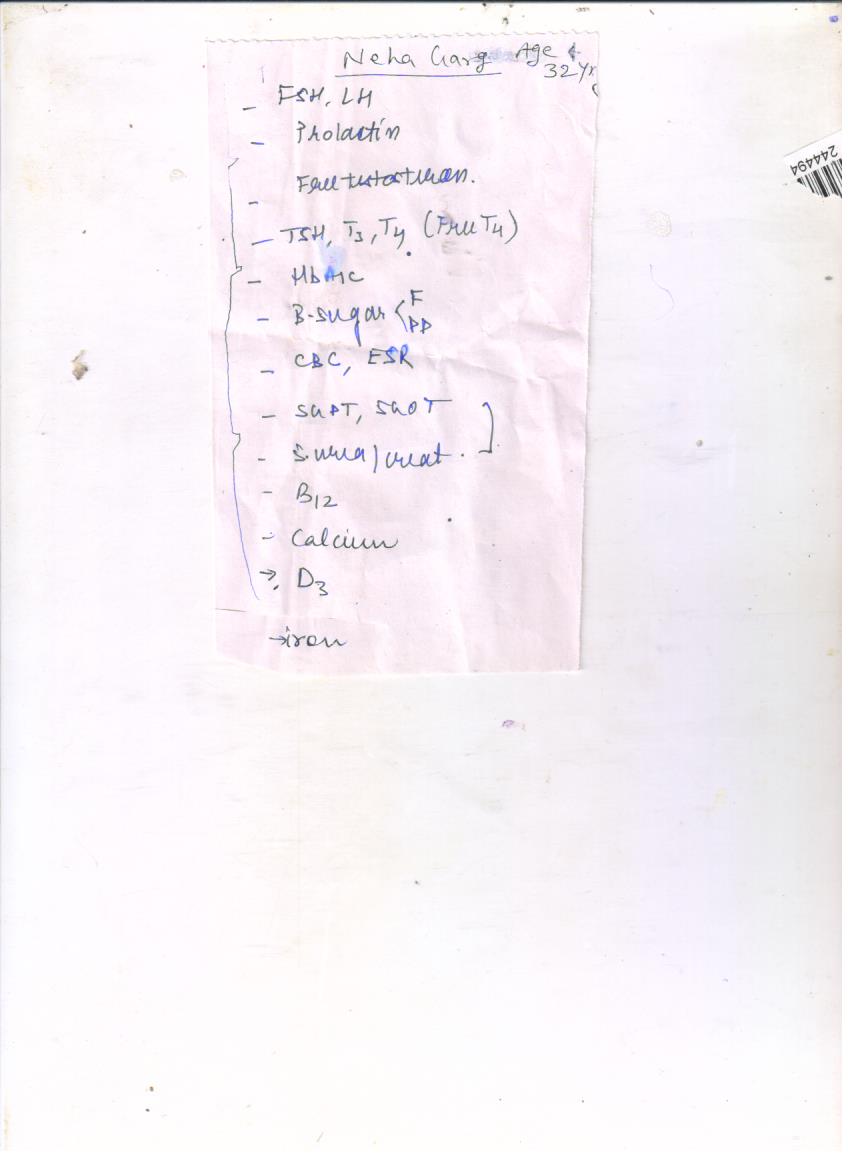 Neha Garg Age &
32 Yrs
- FSH, LH
- Prolactin
- Free testosteron.
- TSH, T3, T4 (Free T4)
- HbA1c
- B-sugar < F
PP
- CBC, ESR
- SGPT, SGOT ]
- S.urea / creat.
- B12
- Calcium
→ D3
→ iron
244494